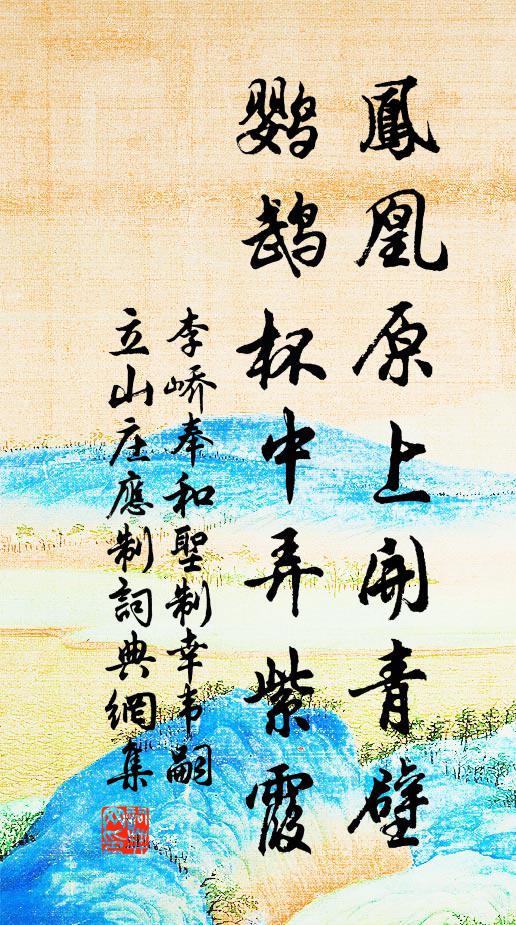 鳳凰原上開青壁
鸚鵡杯中弄紫霞
李嶠奉和聖制幸韦嗣
立山庄應制詞典網集